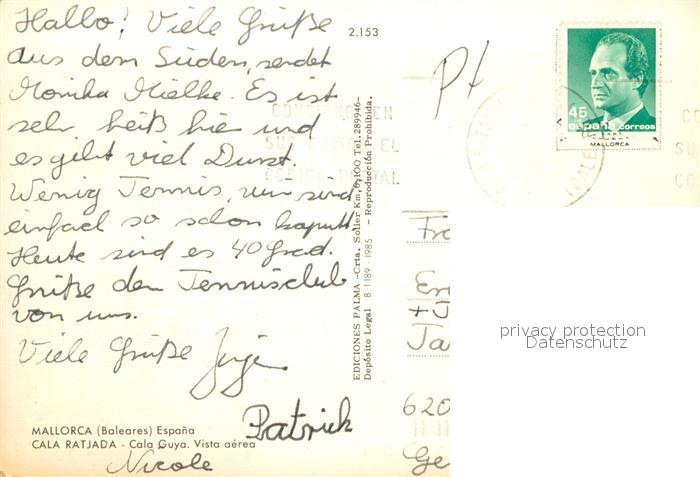 Hallo! Viele Grüße
aus dem Süden, sendet
Monika Mielke. Es ist
sehr heiß hier und
es gibt viel Durst.
Wenig Tennis, wir sind
einfach so schon kaputt.
Heute sind es 40 Grad.
Grüße den Tennisclub
von uns.
Viele Grüße
Patrick
Nicole
MALLORCA (Baleares) España
CALA RATJADA - Cala Guya. Vista aérea
2.153
EDICIONES PALMA -Crta. Soller Km,6,100 Tel.289946-
Depósito Legal B 1189 - 1985 - Reproducción Prohibida.
CONSIGNE EN
SUS ENVIOS EL
CODIGO POSTAL
45
españa correos
MALLORCA
CO
SU
CO
Fr
+
Ta
620
Ge
privacy protection
Datenschutz